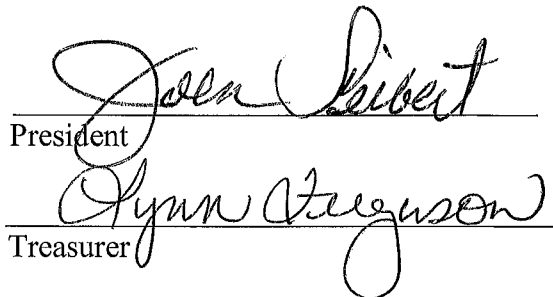 Seibert
President
Lynn Ferguson
Treasurer